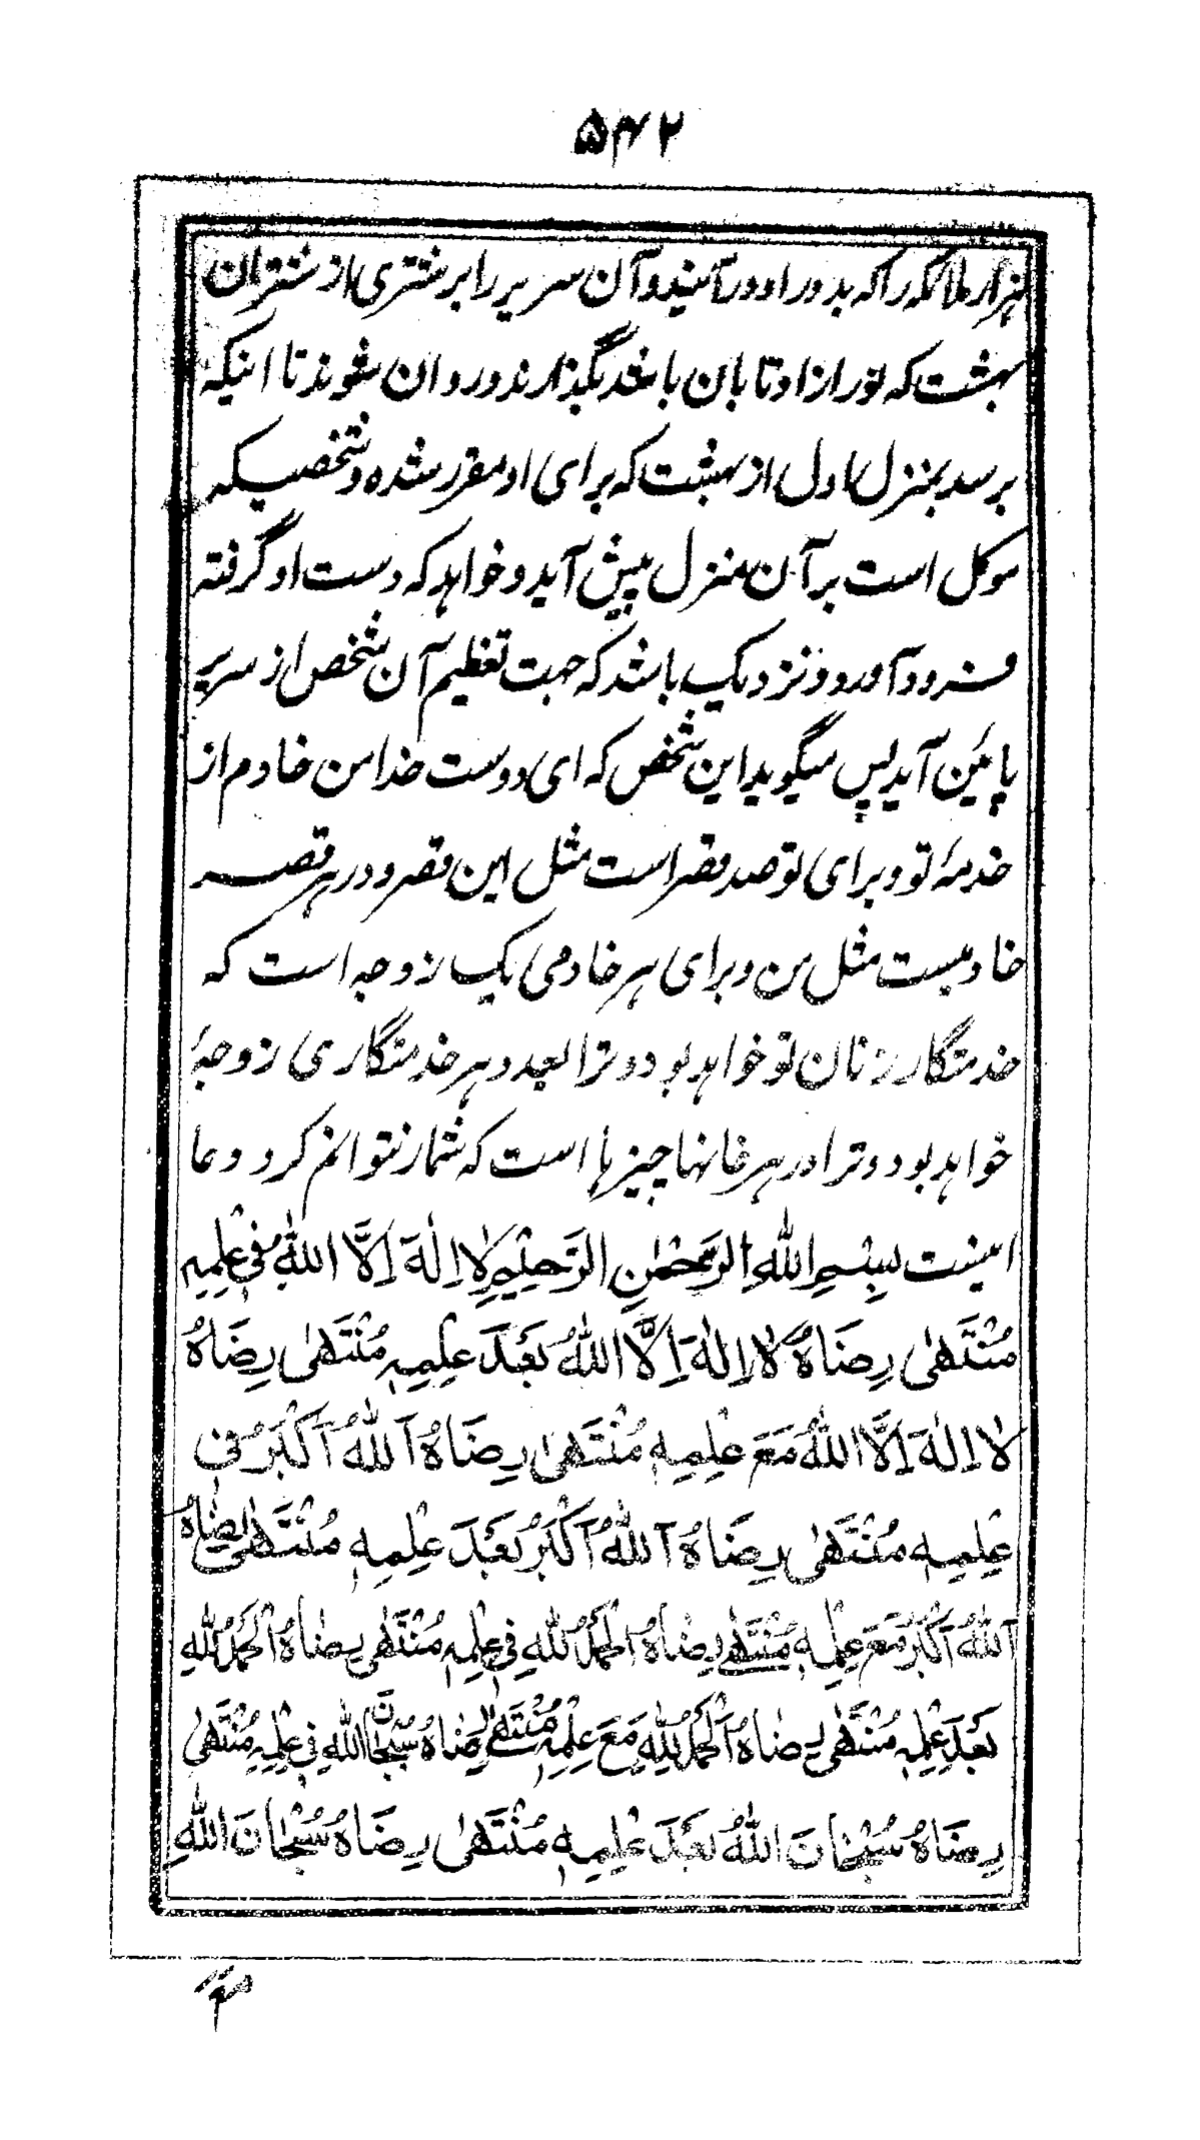 ۵۴۲
هزار ملائکه را که بدور او در آیند و آن سریر را بر شتری از شتران
بهشت که نور از او تابان باشد بگذارند و روان شوند تا اینکه
برسد بمنزل اول از بهشت که برای او مقرر شده و شخصیکه
موکل است بر آن منزل پیش آید و خواهد که دست او گرفته
فرود آورد و نزدیک باشد که جهت تعظیم آن شخص از سریر
پائین آید پس میگوید این شخص که ای دوست خدا من خادم از
خدمهٔ تو و برای تو صد قصر است مثل این قصر و در هر قصر
خادمیست مثل من و برای هر خادمی یک زوجه است که
خدمتگار زنان تو خواهد بود و ترا بعدد هر خدمتگاری زوجهٔ
خواهد بود و ترا در هر خانها چیزها است که شمار نتوانم کرد و دعا
اینست بِسْمِ اللهِ الرَّحْمٰنِ الرَّحِیْمِ لَا اِلٰهَ اِلَّا اللهُ فِی عِلْمِهِ
مُنْتَهٰی رِضَاهُ لَا اِلٰهَ اِلَّا اللهُ بَعْدَ عِلْمِهِ مُنْتَهٰی رِضَاهُ
لَا اِلٰهَ اِلَّا اللهُ مَعَ عِلْمِهِ مُنْتَهٰی رِضَاهُ اَللهُ اَکْبَرُ فِی
عِلْمِهِ مُنْتَهٰی رِضَاهُ اَللهُ اَکْبَرُ بَعْدَ عِلْمِهِ مُنْتَهٰی رِضَاهُ
اَللهُ اَکْبَرُ مَعَ عِلْمِهِ مُنْتَهٰی رِضَاهُ اَلْحَمْدُ لِلّٰهِ فِی عِلْمِهِ مُنْتَهٰی رِضَاهُ اَلْحَمْدُ لِلّٰهِ
بَعْدَ عِلْمِهِ مُنْتَهٰی رِضَاهُ اَلْحَمْدُ لِلّٰهِ مَعَ عِلْمِهِ مُنْتَهٰی رِضَاهُ سُبْحَانَ اللهِ فِی عِلْمِهِ مُنْتَهٰی
رِضَاهُ سُبْحَانَ اللهُ بَعْدَ عِلْمِهِ مُنْتَهٰی رِضَاهُ سُبْحَانَ اللهِ
مع